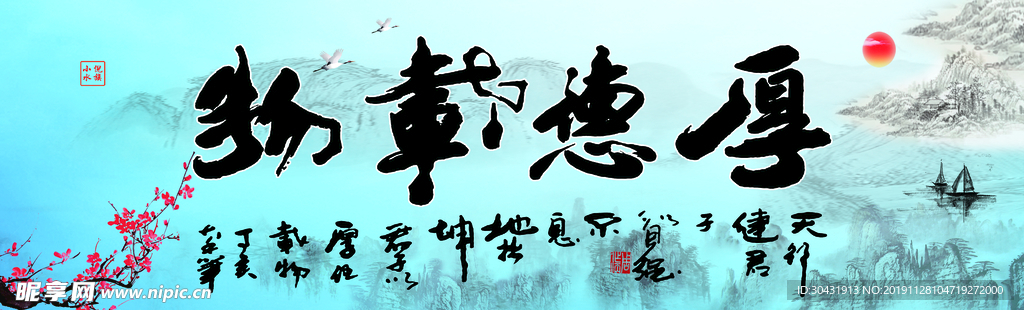 厚德載物
天行
健君
子
以自強
不
息
地势
坤
君子以
厚德
載物
丁亥
昵享网 www.nipic.cn
ID:30431913 NO:20191128104719272000